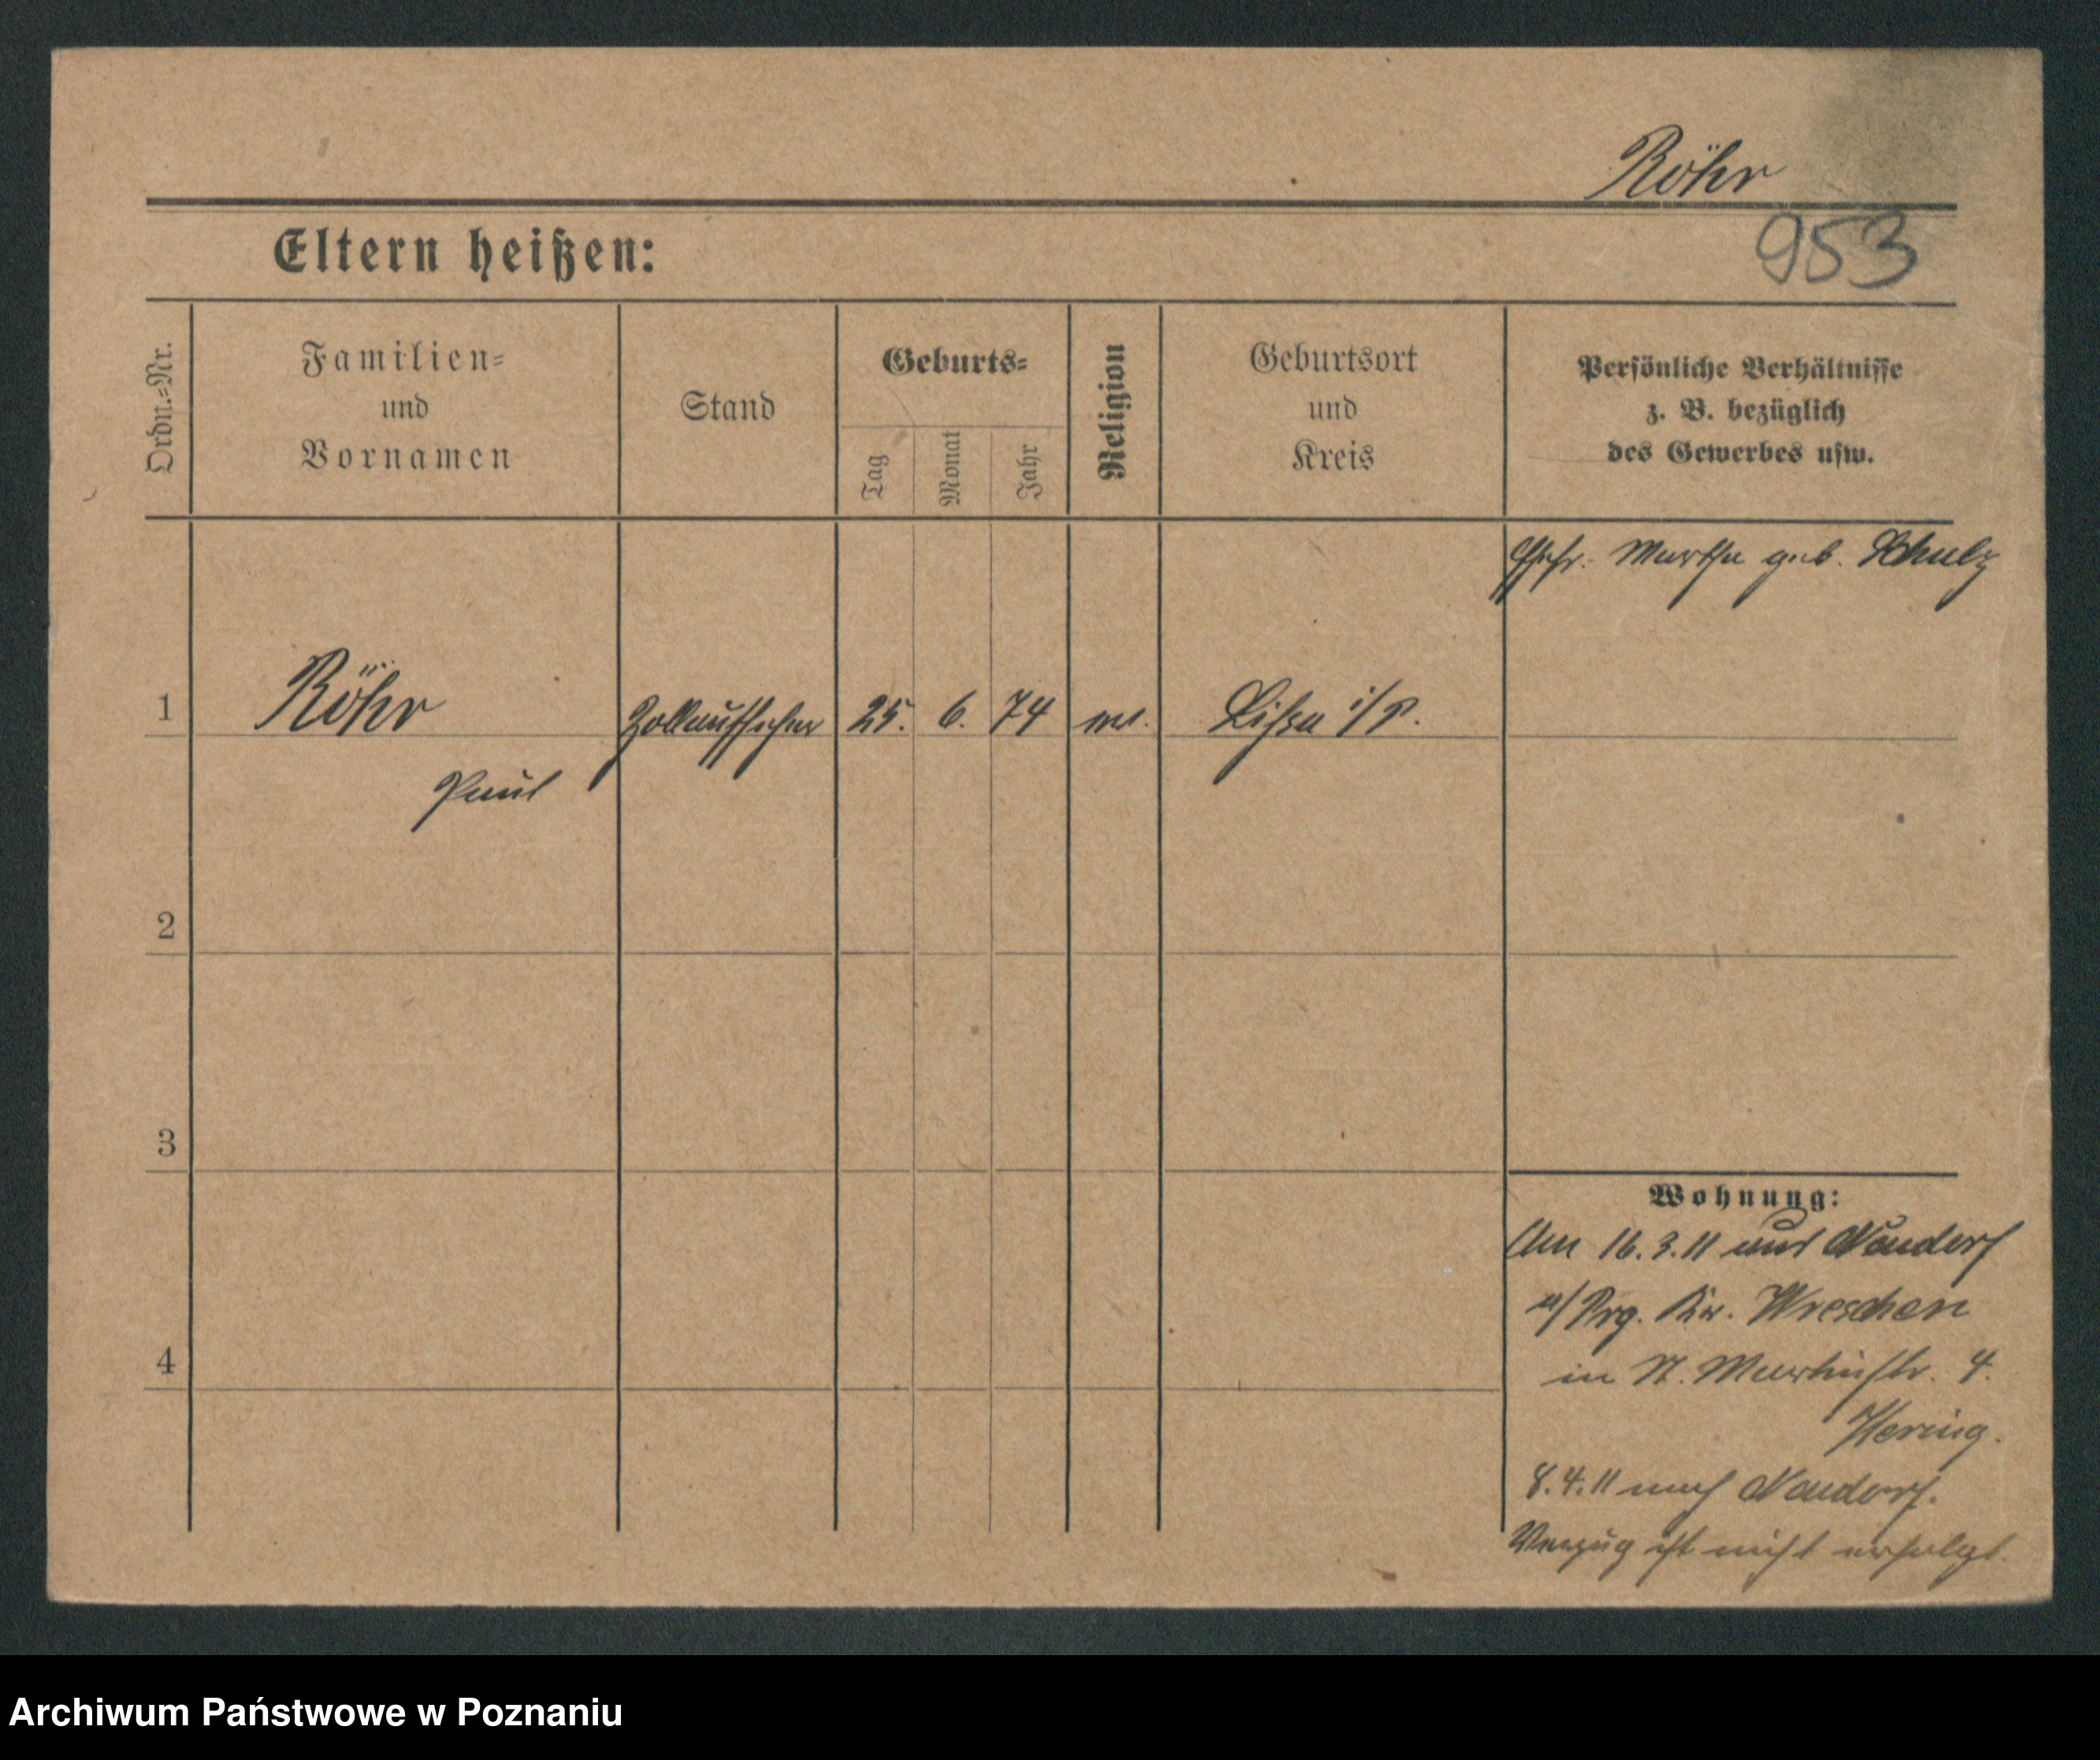 Röhr
953
Eltern heißen:
Ordn.=Nr.
Familien=
und
Vornamen
Stand
Geburts=
Tag
Monat
Jahr
Religion
Geburtsort
und
Kreis
Persönliche Verhältnisse
z. B. bezüglich
des Gewerbes usw.
Ehefr. Martha geb. Schulz
1 Röhr Zollaufseher 25. 6. 74 ev. Lissa i/P.
Paul
2
3
4
Wohnung:
Am 16.3.11 aus Neudorf
a/Prg. Kr. Wreschen
in St. Martinstr. 4.
Hering.
8.4.11 nach Neudorf.
Verzug ist nicht erfolgt.
Archiwum Państwowe w Poznaniu